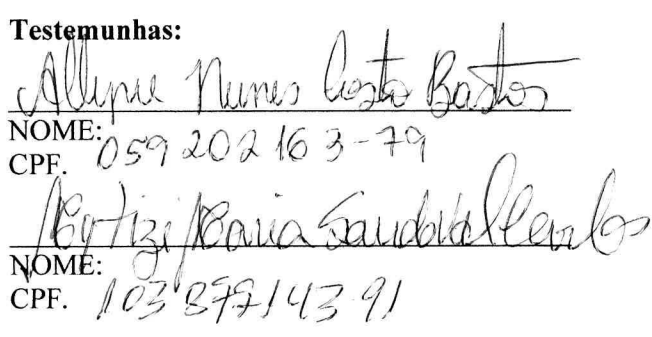 Testemunhas:
Allynne Nunes Costa Bastos
NOME:
CPF. 059 202 163-79
Maria Sandoval
NOME:
CPF. 103 877143-91